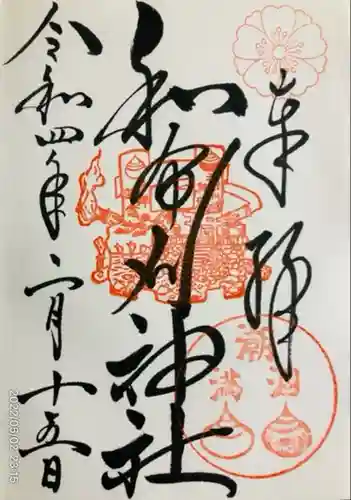 奉拝
和布刈神社
令和四年二月十五日
潮
満
涸
2022/05/02 23:15